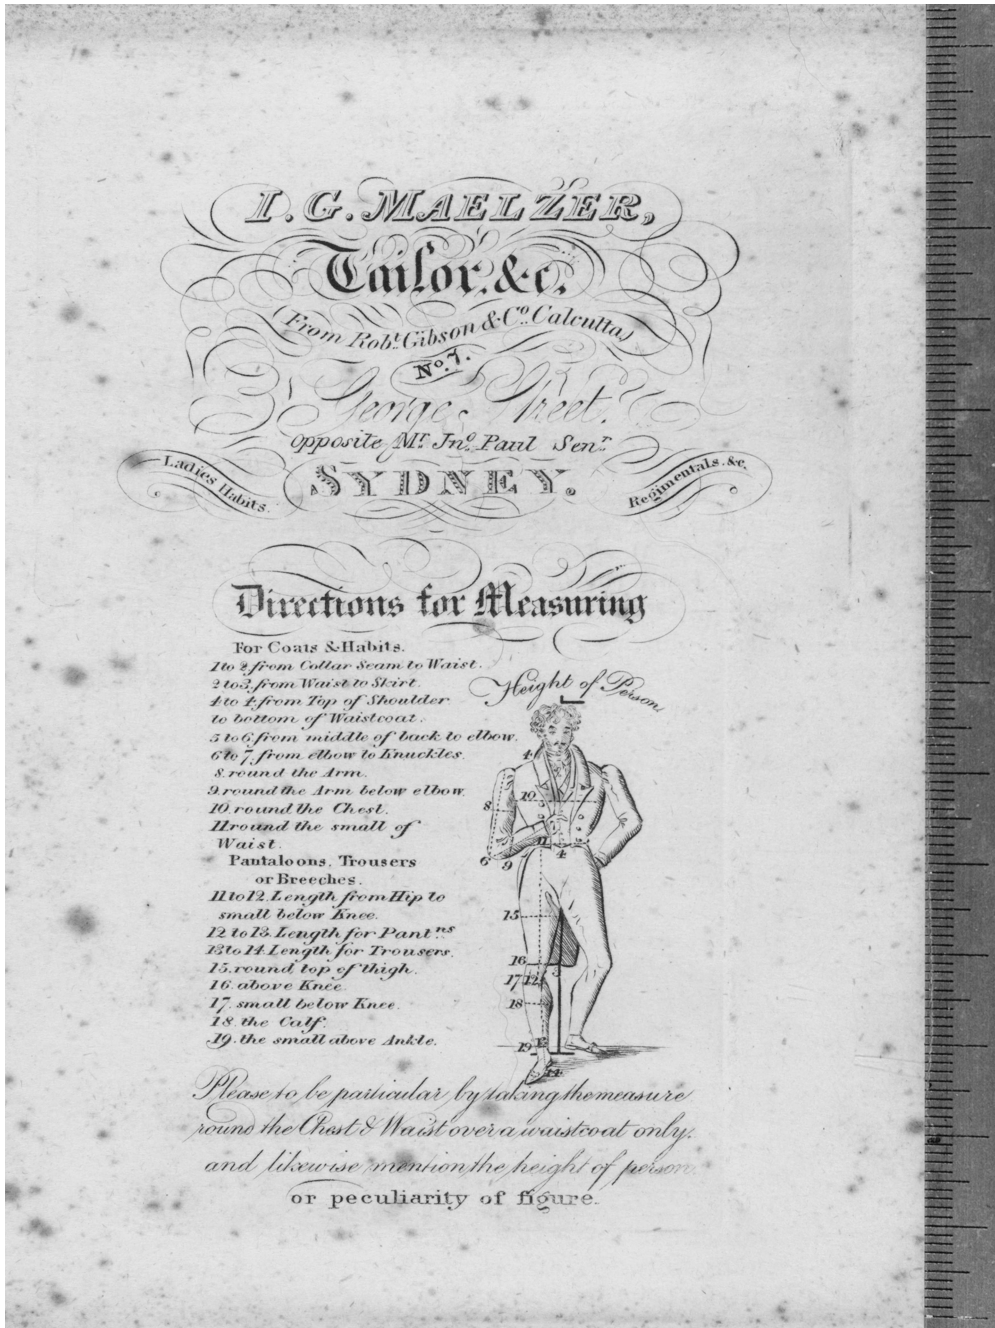 I. G. MAELZER,
Tailor. &c.
(From Robt. Gibson & Co. Calcutta)
No. 7.
George Street.
Opposite Mr. Jno. Paul Senr.
SYDNEY.
Ladies Habits.
Regimentals. &c.
Directions for Measuring
For Coats & Habits.
1 to 2. from Collar Seam to Waist.
2 to 3. from Waist to Skirt.
4 to 4. from Top of Shoulder
to bottom of Waistcoat.
5 to 6. from middle of back to elbow.
6 to 7. from elbow to Knuckles.
8. round the Arm.
9. round the Arm below elbow.
10. round the Chest.
11. round the small of
Waist.
Pantaloons. Trousers
or Breeches.
11 to 12. Length from Hip to
small below Knee.
12 to 13. Length for Pantns
13 to 14. Length for Trousers.
15. round top of thigh.
16. above Knee.
17. small below Knee.
18. the Calf.
19. the small above Ankle.
Height of Person
4
10
8
11
6
9
4
15
16
3
17
12
18
19
13
14
Please to be particular by taking the measure
round the Chest & Waist over a waistcoat only.
and likewise mention the height of person.
or peculiarity of figure.